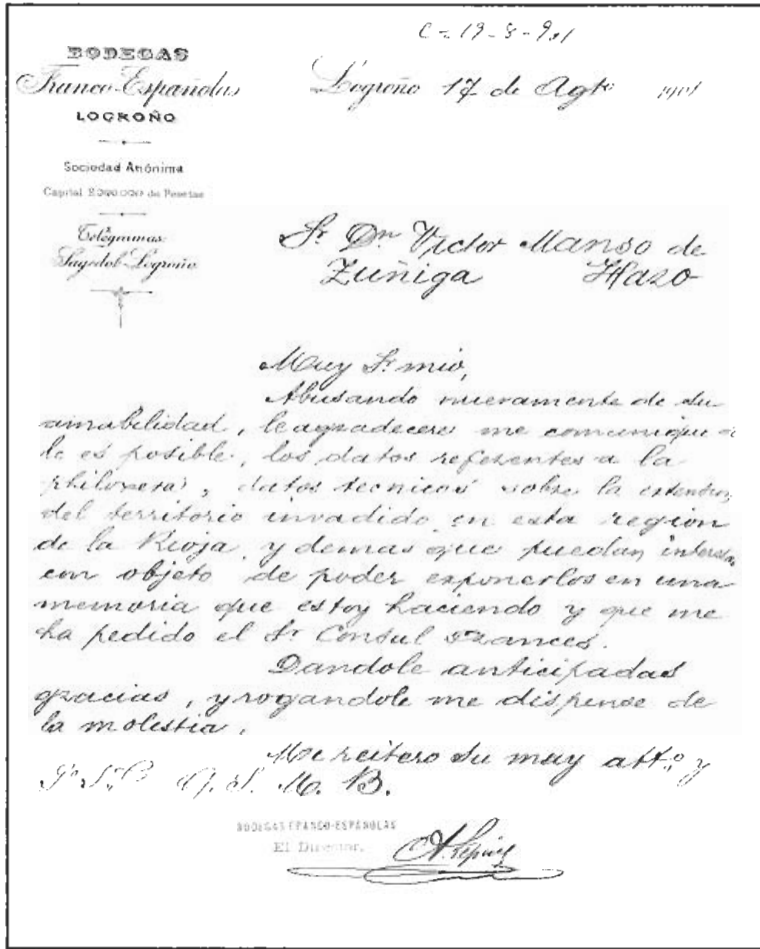 C = 19-8-901
BODEGAS
Franco-Españolas
LOGROÑO
Logroño 17 de Agto 1901
Sociedad Anónima
Capital de Pesetas
Telégramas
Logroño
Sr. Dn Victor Manso de
Zuñiga Haro
Muy Sr. mio,
Abusando nuevamente de su
amabilidad, le agradecere me comunique si
le es posible, los datos referentes a la
philoxera, datos tecnicos sobre la extension
del territorio invadido en esta region
de la Rioja, y demas que puedan
con objeto de poder exponerlos en una
memoria que estoy haciendo y que me
ha pedido el Sr Consul frances.
Dandole anticipadas
gracias, y rogandole me dispense de
la molestia,
Me reitero su muy atto y
Q. S. M. B.
BODEGAS FRANCO-ESPAÑOLAS
El Director,